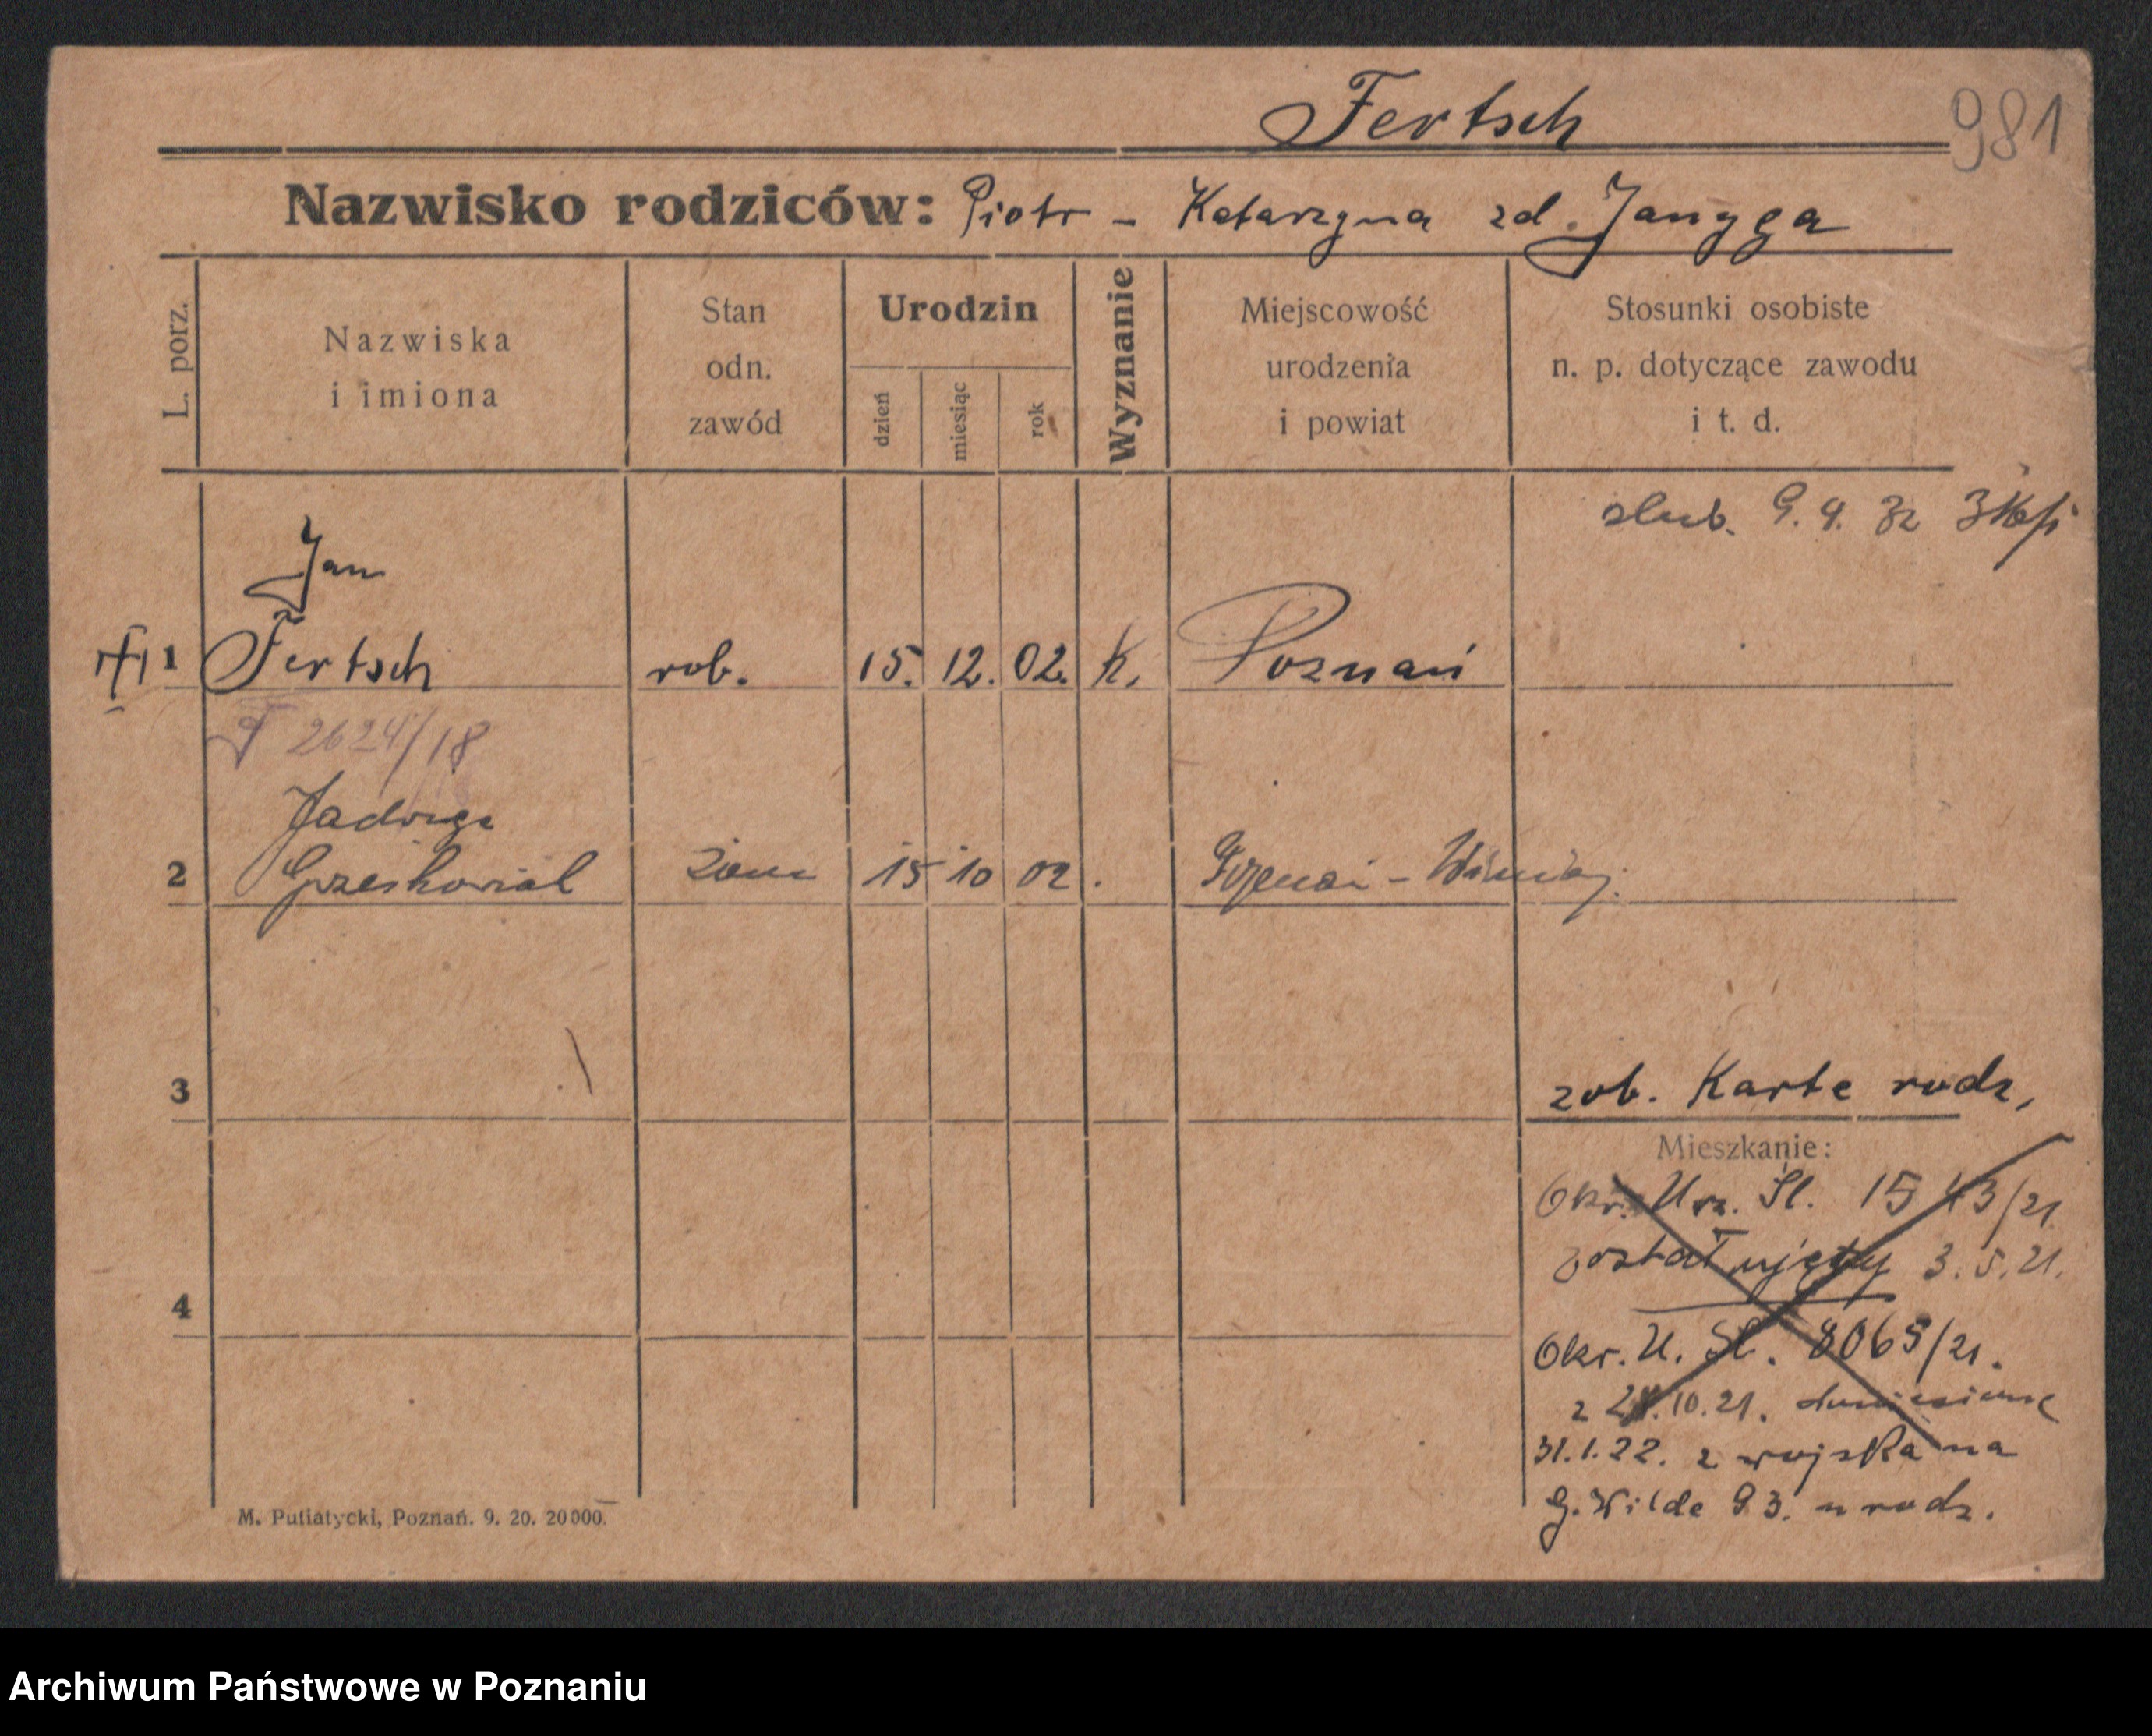 Fertsch
981
Nazwisko rodziców: Piotr - Katarzyna zd. Jangga
L. porz.
Nazwiska
i imiona
Stan
odn.
zawód
Urodzin
dzień
miesiąc
rok
Wyznanie
Miejscowość
urodzenia
i powiat
Stosunki osobiste
n. p. dotyczące zawodu
i t. d.
slub. 9. 4. 32
Jan
1 Fertsch rob. 15. 12. 02. K. Poznań
2624/18
Jadwiga
2 Grześkowiak żona 15 10 02.
3
zob. Karte rodz.
Mieszkanie:
Okr. Urz. Śl. 1543/21
został ujęty 3.5.21.
4
Okr. U. Śl. 8065/21.
z 10.21.
31.1.22. z wojska na
G. Wilde 93. u rodz.
M. Putiatycki, Poznań. 9. 20. 20000.
Archiwum Państwowe w Poznaniu